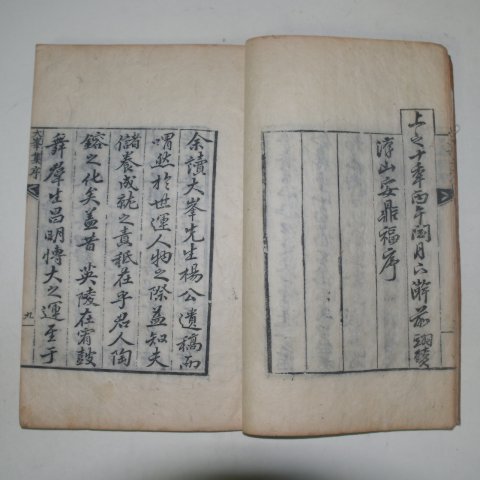 上之十年丙午閏月下澣前翊贊
漢山安鼎福序
余讀大峯先生楊公遺稿而
喟然於世運人物之際益知夫
儲養成就之責秖在乎君人陶
鎔之化矣盖昔 英陵在宥鼓
舞羣生昌明慱大之運至于
大峯集序
九